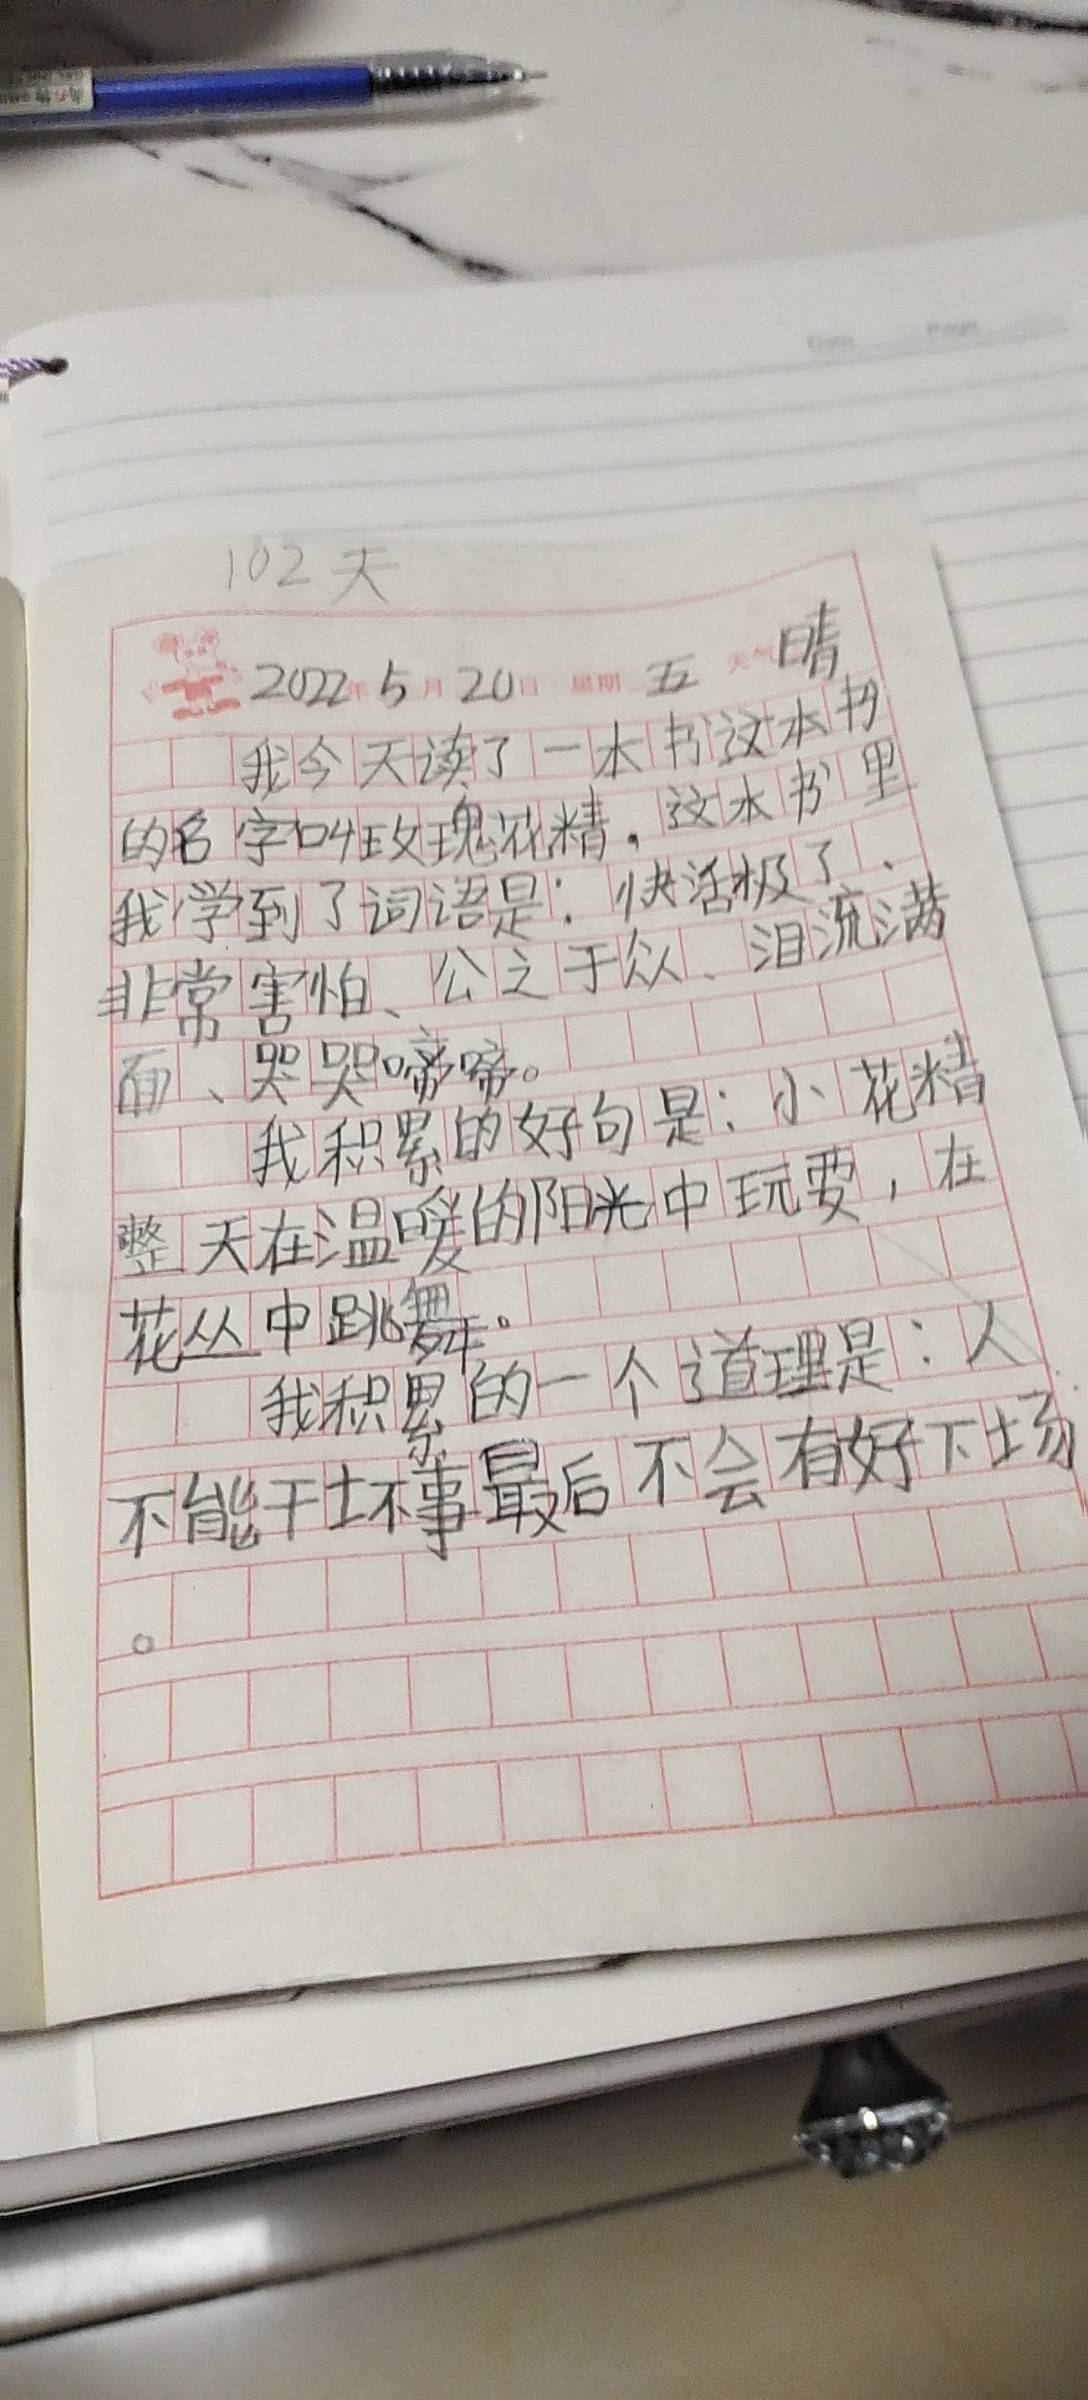 102天
2022年5月20日 星期五 天气晴
我今天读了一本书这本书
的名字叫玫瑰花精。这本书里
我学到了词语是：快活极了、
非常害怕、公之于众、泪流满
面、哭哭啼啼。
我积累的好句是：小花精
整天在温暖的阳光中玩耍，在
花丛中跳舞。
我积累的一个道理是：人
不能干坏事最后不会有好下场
。